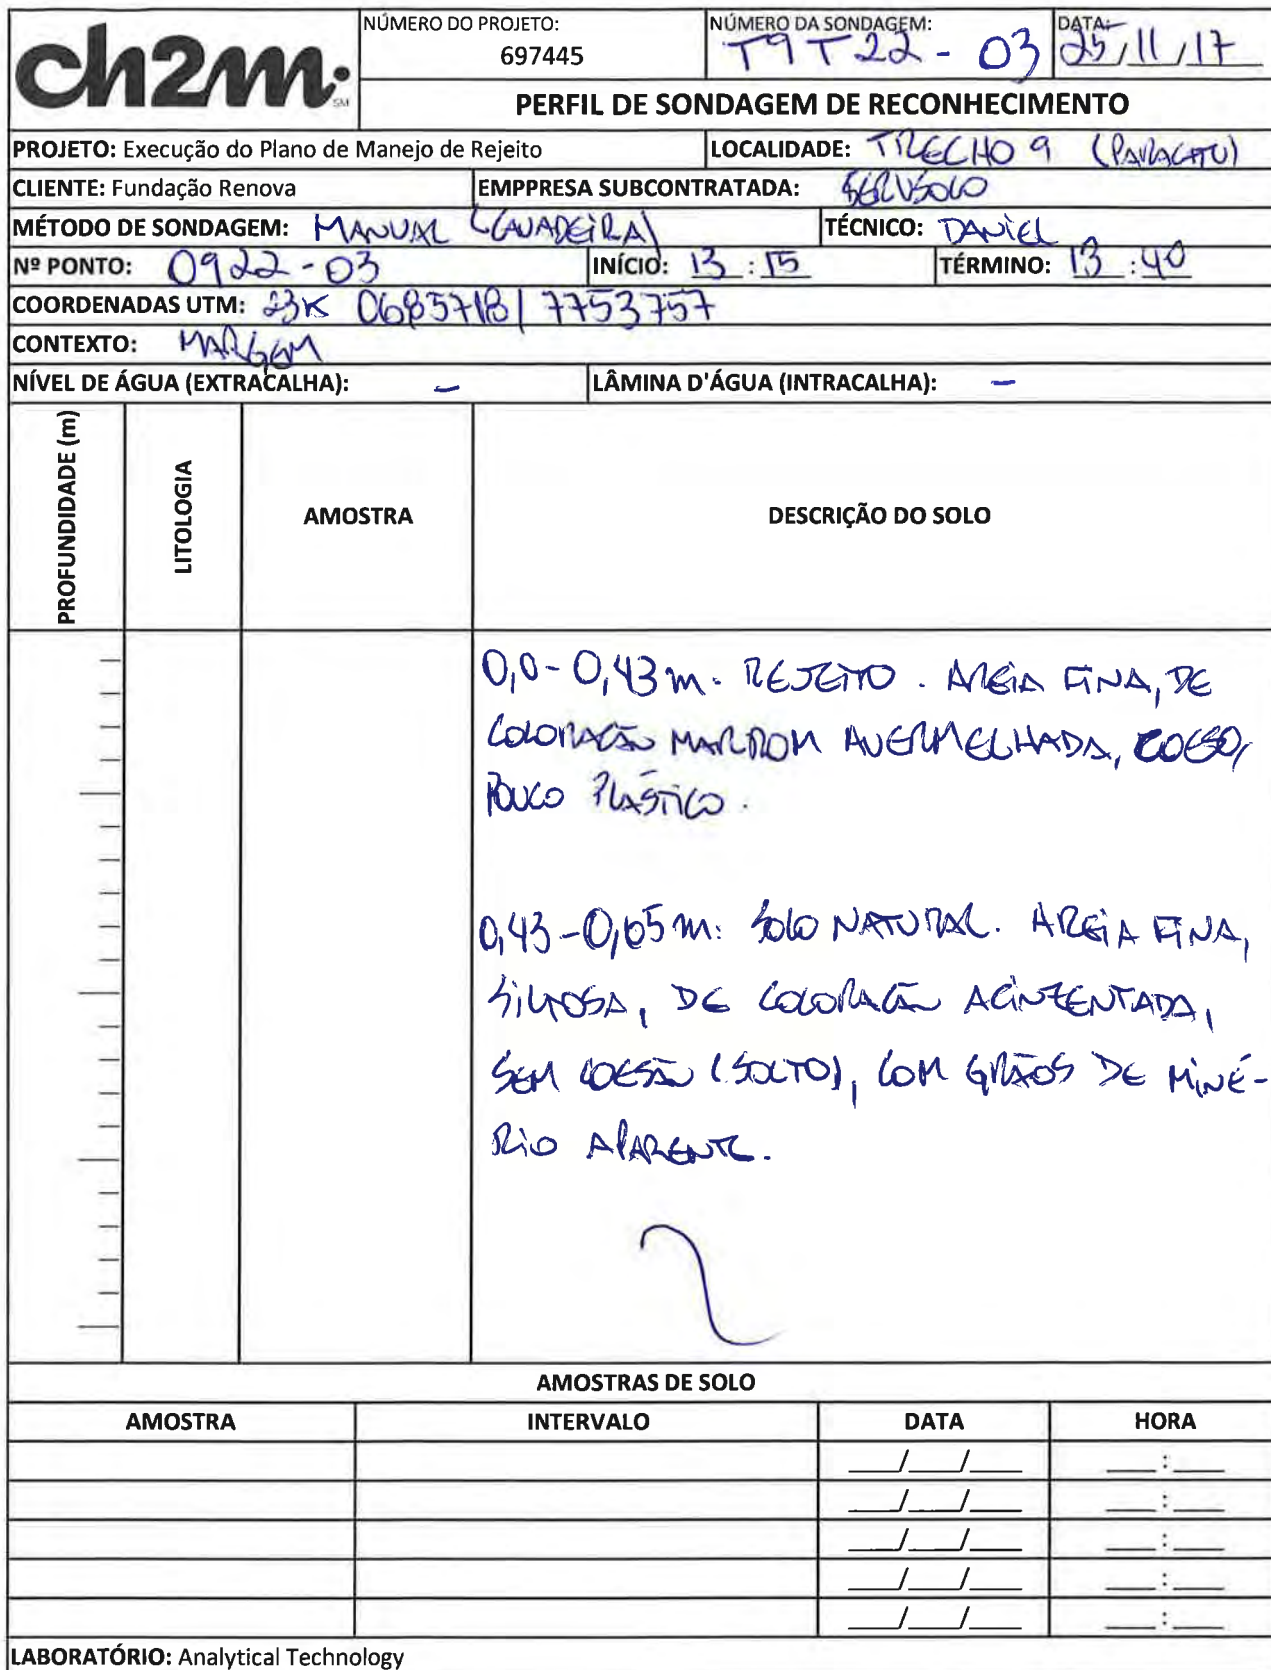 ch2m: SM
NÚMERO DO PROJETO:
697445
NÚMERO DA SONDAGEM:
T9T22-03
DATA:
25/11/17
PERFIL DE SONDAGEM DE RECONHECIMENTO
PROJETO: Execução do Plano de Manejo de Rejeito
LOCALIDADE: TRECHO 9 (PARACATU)
CLIENTE: Fundação Renova
EMPPRESA SUBCONTRATADA: SERVSOLO
MÉTODO DE SONDAGEM: MANUAL (CAVADEIRA)
TÉCNICO: DANIEL
Nº PONTO: 0922-03
INÍCIO: 13:15
TÉRMINO: 13:40
COORDENADAS UTM: 23K 0685718 | 7753757
CONTEXTO: MARGEM
NÍVEL DE ÁGUA (EXTRACALHA): -
LÂMINA D'ÁGUA (INTRACALHA): -
PROFUNDIDADE (m)
LITOLOGIA
AMOSTRA
DESCRIÇÃO DO SOLO
0,0-0,43m: REJEITO. AREIA FINA, DE
COLORAÇÃO MARROM AVERMELHADA, COESO,
POUCO PLÁSTICO.
0,43-0,65m: SOLO NATURAL. AREIA FINA,
SILTOSA, DE COLORAÇÃO ACINZENTADA,
SEM COESÃO (SOLTO), COM GRÃOS DE MINÉ-
RIO APARENTE.
AMOSTRAS DE SOLO
AMOSTRA INTERVALO DATA HORA
___/___/___ ___:___
___/___/___ ___:___
___/___/___ ___:___
___/___/___ ___:___
___/___/___ ___:___
LABORATÓRIO: Analytical Technology